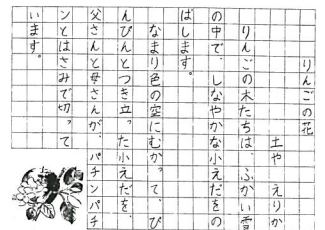 りんごの花
土や えりか
りんごの木たちは、ふかい雪
の中で、しなやかな小えだをの
ばします。
なまり色の空にむかって、ぴ
んぴんとつき立った小えだを、
父さんと母さんが、パチンパチ
ンとはさみで切って
います。